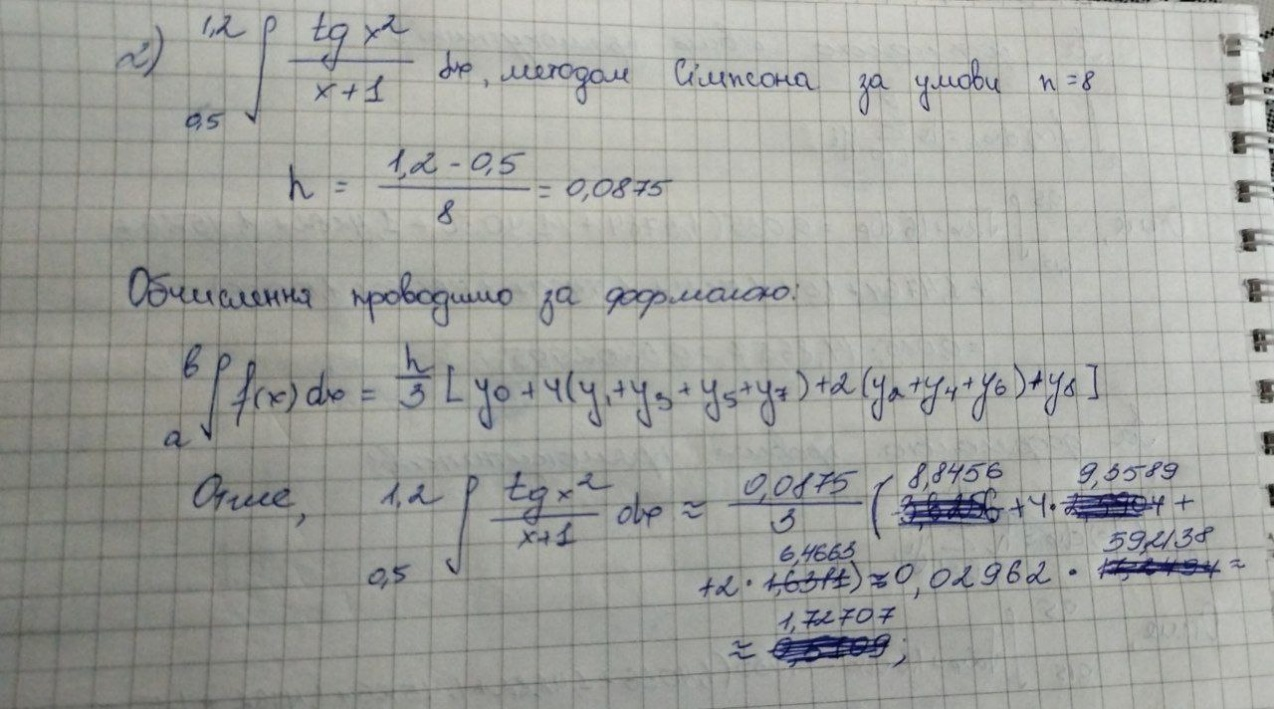 2) 1,2 ∫ 0,5 tg x² / x+1 dx, методом Сімпсона за умови n=8
h = 1,2 - 0,5 / 8 = 0,0875
Обчислення проводимо за формолою:
в ∫ a f(x) dx = h/3 [y0 + 4(y1+y3+y5+y7)+2(y2+y4+y6)+y8]
Отже, 1,2 ∫ 0,5 tg x² / x+1 dx ≈ 0,0875 / 3 (8,8456 + 4 · 9,5589 +
+2 · 6,4663) ≈ 0,02962 · 59,2138 ≈
≈ 1,72707;